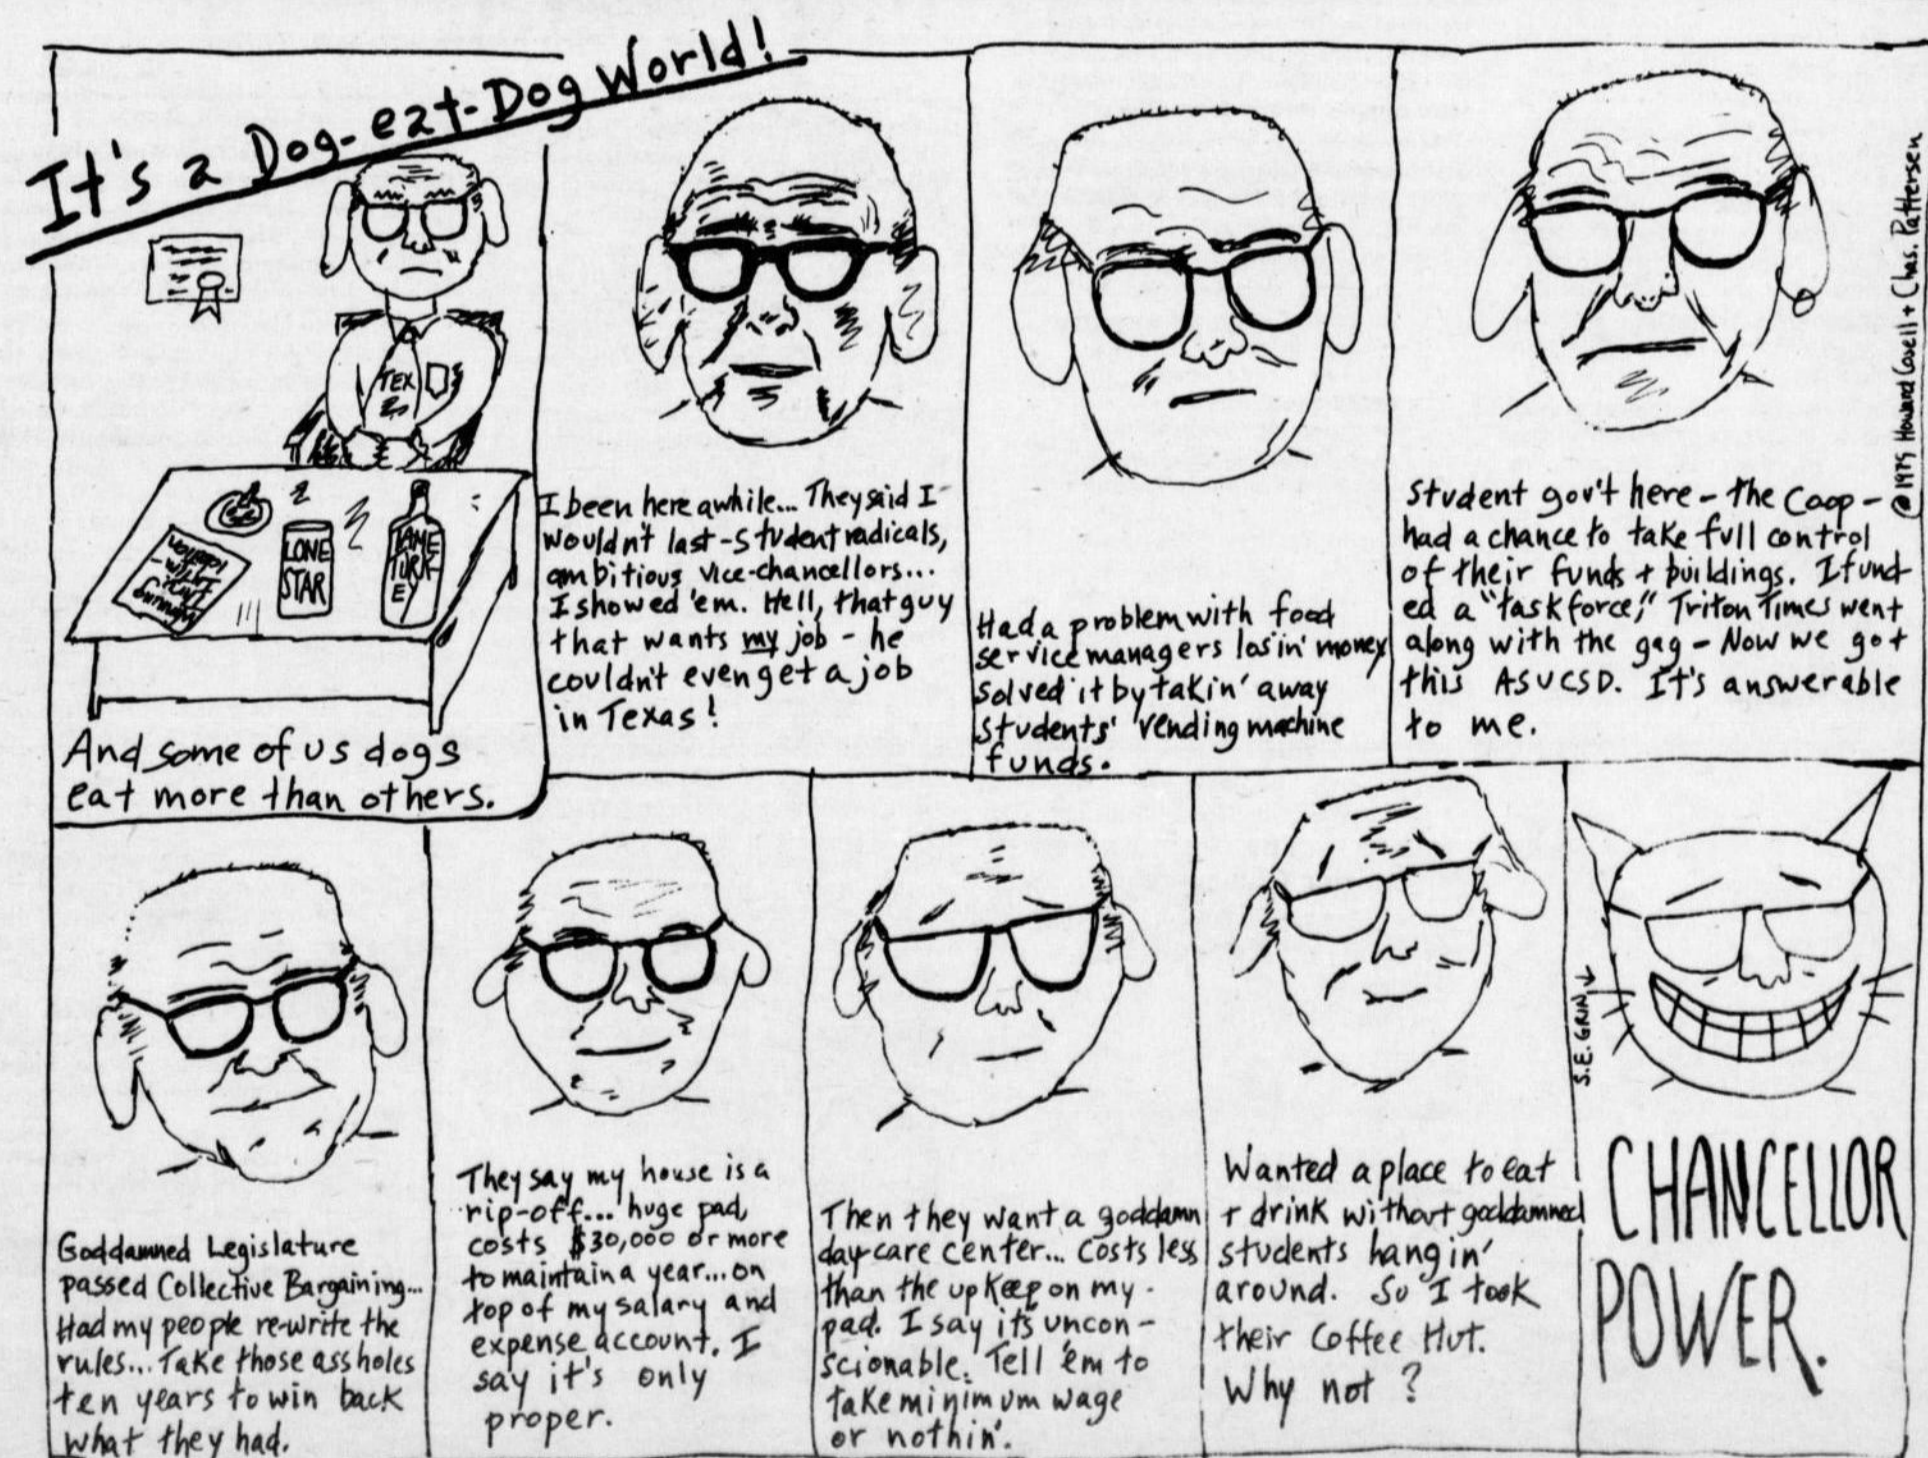 It's a Dog-eat-Dog World!
TEX
LONE
STAR
TAME
TURK
EY
And some of us dogs
eat more than others.
I been here awhile... They said I
wouldn't last - student radicals,
ambitious vice-chancellors...
I showed 'em. Hell, that guy
that wants my job - he
couldn't even get a job
in Texas!
Had a problem with food
service managers losin' money
solved it by takin' away
students' vending machine
funds.
Student gov't here - the Coop -
had a chance to take full control
of their funds + buildings. I fund
ed a "task force," Triton Times went
along with the gag - Now we got
this ASUCSD. It's answerable
to me.
Howard + Chas. Pattersen
Goddamned Legislature
passed Collective Bargaining...
Had my people re-write the
rules... Take those assholes
ten years to win back
what they had.
They say my house is a
rip-off... huge pad,
costs $30,000 or more
to maintain a year... on
top of my salary and
expense account. I
say it's only
proper.
Then they want a goddamn
day-care center... Costs less
than the upkeep on my
pad. I say it's uncon-
scionable. Tell 'em to
take minimum wage
or nothin'.
Wanted a place to eat
+ drink without goddamned
students hangin'
around. So I took
their Coffee Hut.
Why not ?
S.E. GRIN
CHANCELLOR
POWER.